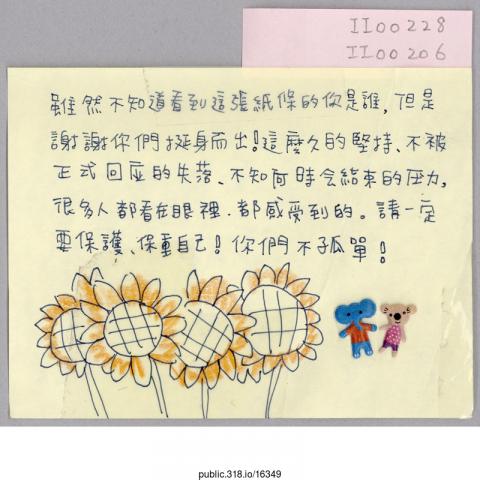 II00228
II00206
雖然不知道看到這張紙條的你是誰,但是
謝謝你們挺身而出!這麼久的堅持、不被
正式回應的失落、不知何時會結束的壓力,
很多人都看在眼裡.都感受到的。請一定
要保護、保重自己!你們不孤單!
public.318.io/16349